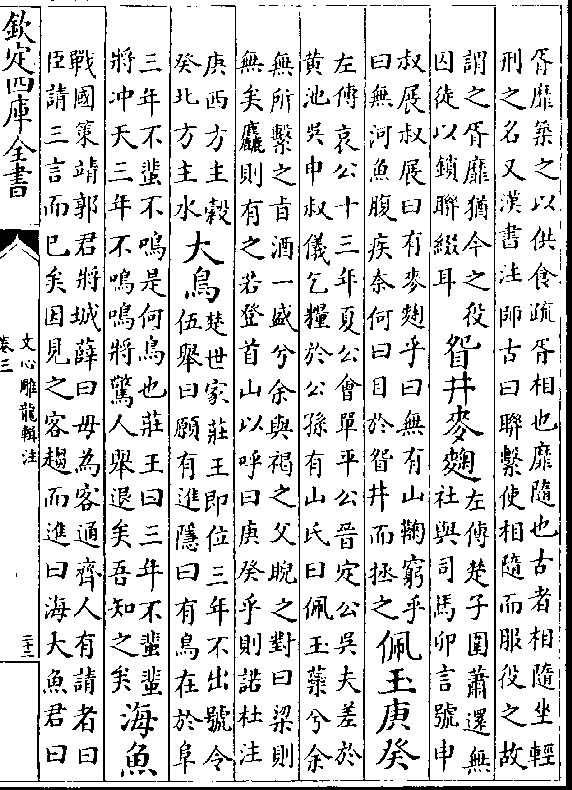 胥靡築之以供食疏胥相也靡隨也古者相隨坐輕
刑之名又漢書注師古曰聯繫使相隨而服役之故
謂之胥靡猶今之役
囚徒以鎖聯綴耳
眢井麥麴
左傳楚子圍蕭還無
社與司馬卯言號申
叔展叔展曰有麥麴乎曰無有山鞠窮乎
曰無河魚腹疾奈何曰目於眢井而拯之
佩玉庚癸
左傳哀公十三年夏公會單平公晉定公吳夫差於
黃池吳申叔儀乞糧於公孫有山氏曰佩玉蘂兮余
無所繫之旨酒一盛兮余與褐之父睨之對曰梁則
無矣麤則有之若登首山以呼曰庚癸乎則諾杜注
庚西方主穀
癸北方主水
大鳥
楚世家莊王即位三年不出號令
伍舉曰願有進隱曰有鳥在於阜
三年不蜚不鳴是何鳥也莊王曰三年不蜚蜚
將冲天三年不鳴鳴將驚人舉退矣吾知之矣
海魚
戰國策靖郭君將城薛曰毋為客通齊人有請者曰
臣請三言而已矣因見之客趨而進曰海大魚君曰
欽定四庫全書
文心雕龍輯注
卷三
二十二